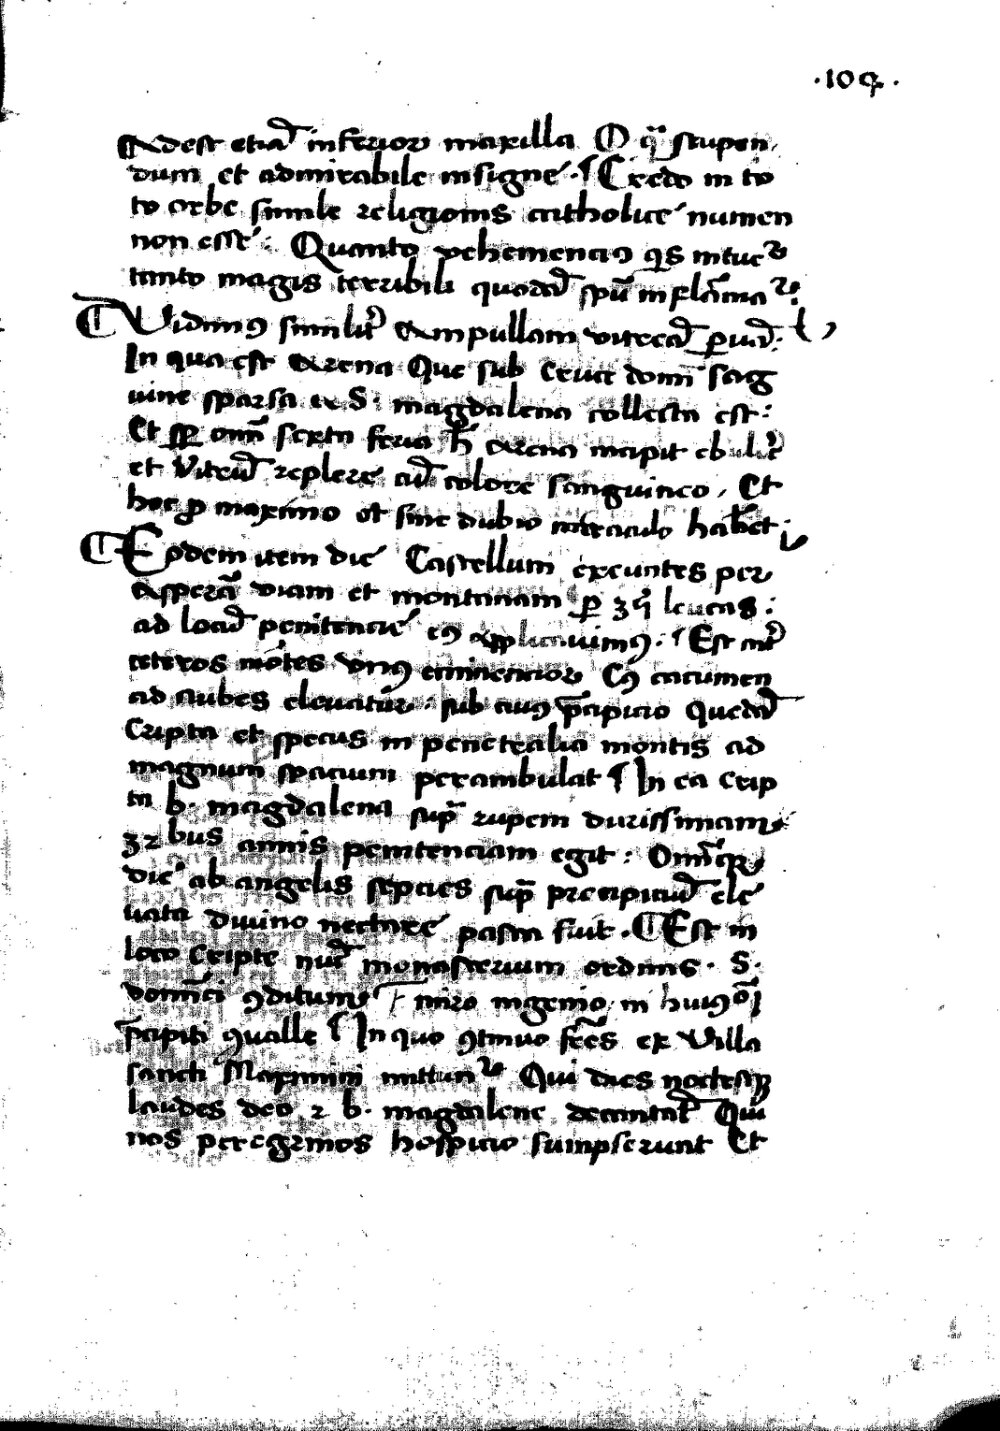 ·109·
Adest etiā inferior maxilla O qͣ stupen
dum et admirabile insigne · ¶ Credo in to
to orbe simile religionis catholice numen
non esse : Quanto vehemencius qis intuetᷣ
tanto magis terribili quodā spū inflāmatᷣ
¶ Vidimus similitͬ Ampullam vitreā ꝑuā :
In qua est Arena Que sub Cruce domī sag
uine sparsa et S · magdalena collecta est :
Et sꝑ omī sexta feria h̄ Arena incipit ebulir̄
et vitrū replere cū colore sanguineo , Et
hoc ꝓ maximo et sine dubio miraculo habet̄ :
¶ Eodem item die Castellum exeuntes per
Asperā viam et montanam ꝑ 3 leucas :
ad locū penitencie eius applicuimus · ¶ Est int̄
ceteros mōtes vnus eminencior Cꝰ cacumen
ad nubes eleuatur : sub cuius p̄cipicio Quedā
Cripta et specus in penetralia montis ad
magnum spacium perambulat ¶ In ea Crip
ta b · magdalena sup̄ rupem durissimam
32bus annis penitenciam egit : Omīqꝫ
die ab angelis septies sup̄ precipiciū ele
uata diuino nectare pasta fuit · ¶ Est in
loco Cripte nūc monasterium ordinis · S ·
domīci ꝯditum miro ingenio in huiꝰmōi
p̄cipiti ꝯualle ¶ In quo ꝯtinuo fr̄es ex Villa
sancti Maximini mittuntᷣ Qui dies noctesqꝫ
laudes deo et b · magdalene decantāt Qui
nos peregrinos hospicio sumpserunt Et